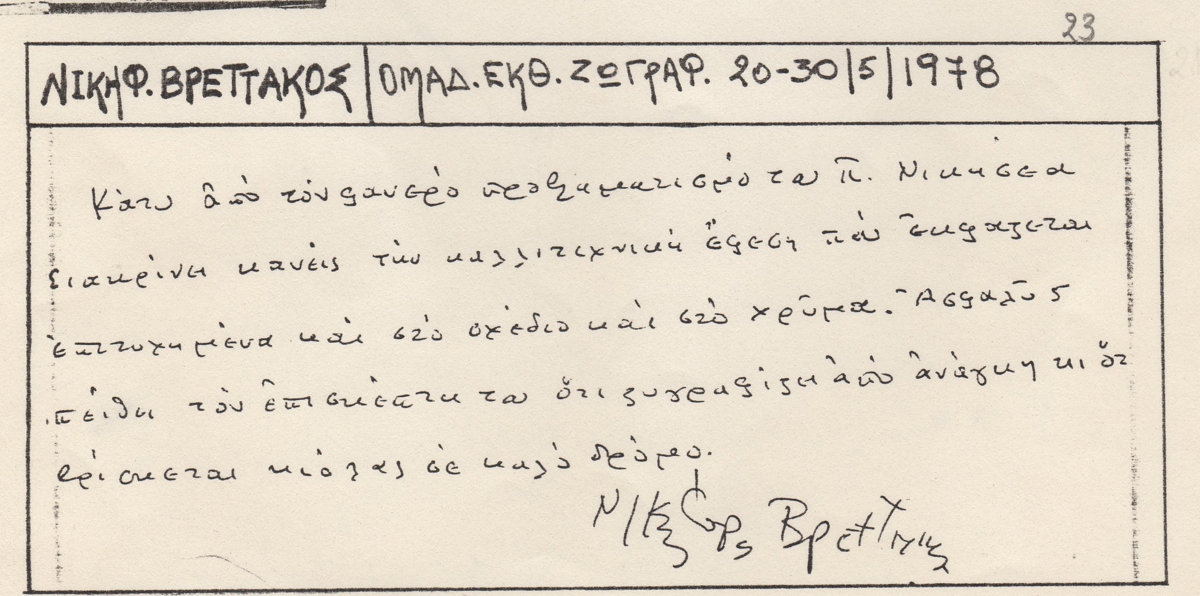 23
ΝΙΚΗΦ. ΒΡΕΤΤΑΚΟΣ | ΟΜΑΔ. ΕΚΘ. ΖΩΓΡΑΦ. 20-30/5/1978
Κάτω ἀπό τόν φανερό προβληματισμό του Π. Νικησέα
διακρίνει κανείς τήν καλλιτεχνική ἔφεση πού ἐκφράζεται
ἐπιτυχημένα καί στό σχέδιο καί στό χρῶμα. Ἀσφαλῶς
πείθει τόν ἐπισκέπτη του ὅτι ζωγραφίζει ἀπό ἀνάγκη κι ὅτι
βρίσκεται κιόλας σέ καλό δρόμο.
Νικηφόρος Βρεττάκος